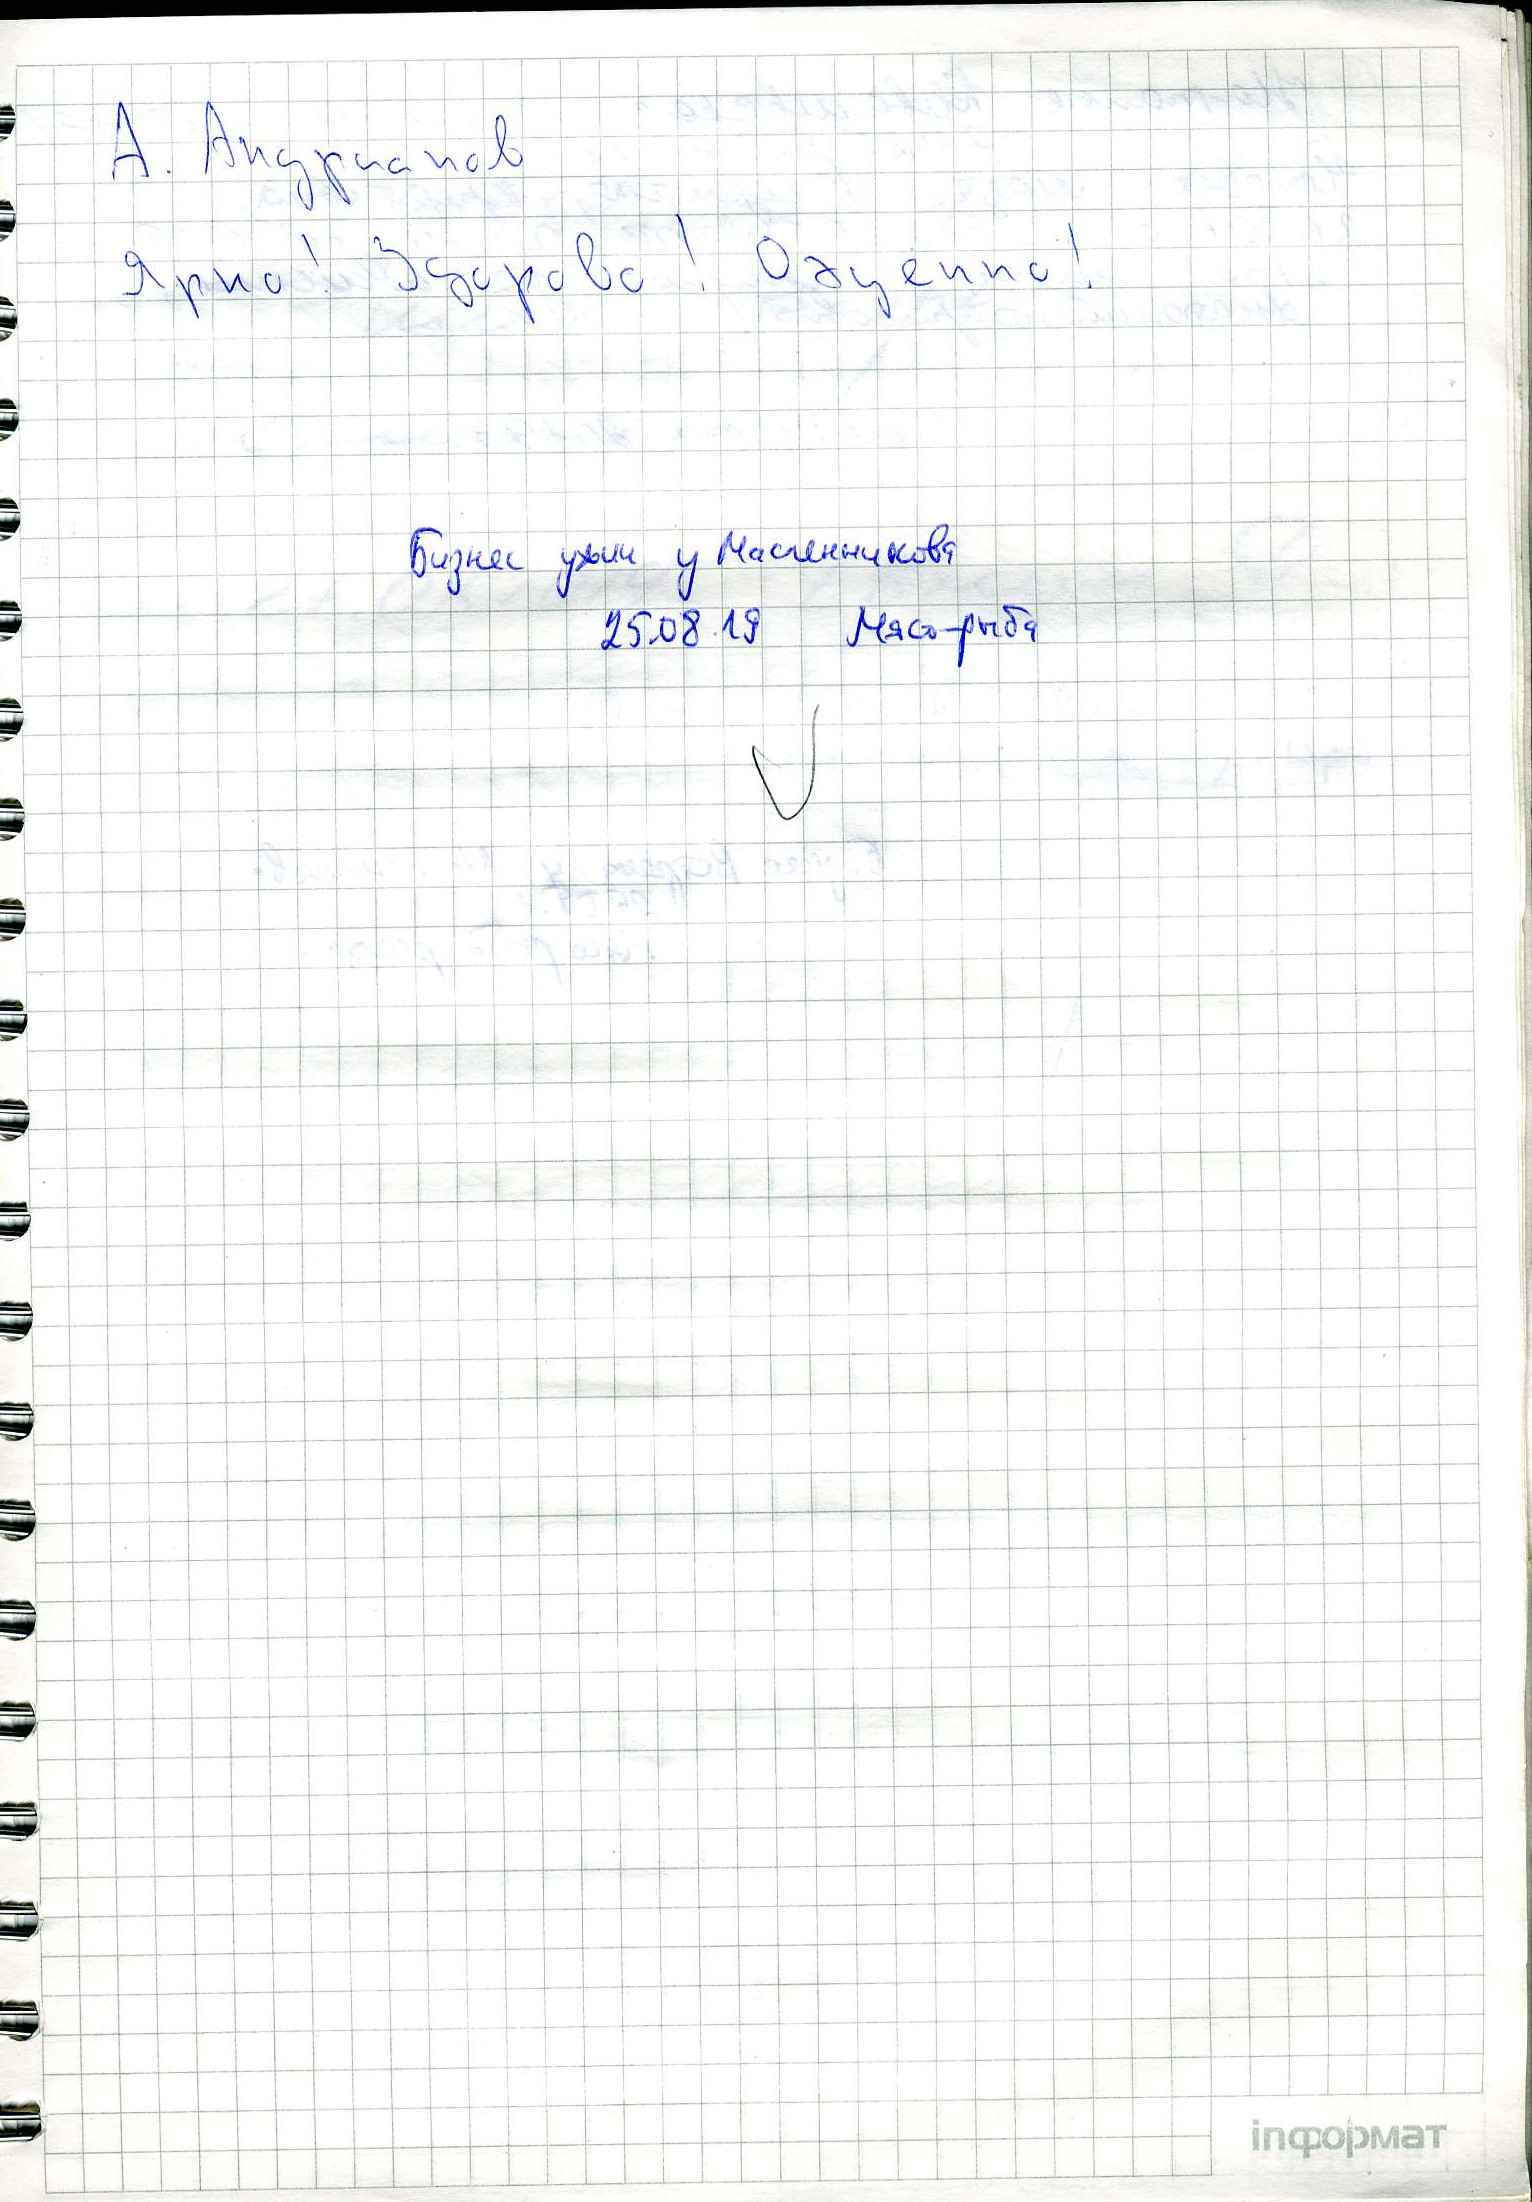 А. Андрианов
Ярко! Здорово! Оценно!
Бизнес ужин у Масленникова
25.08.19 Мясо-рыба
inформат